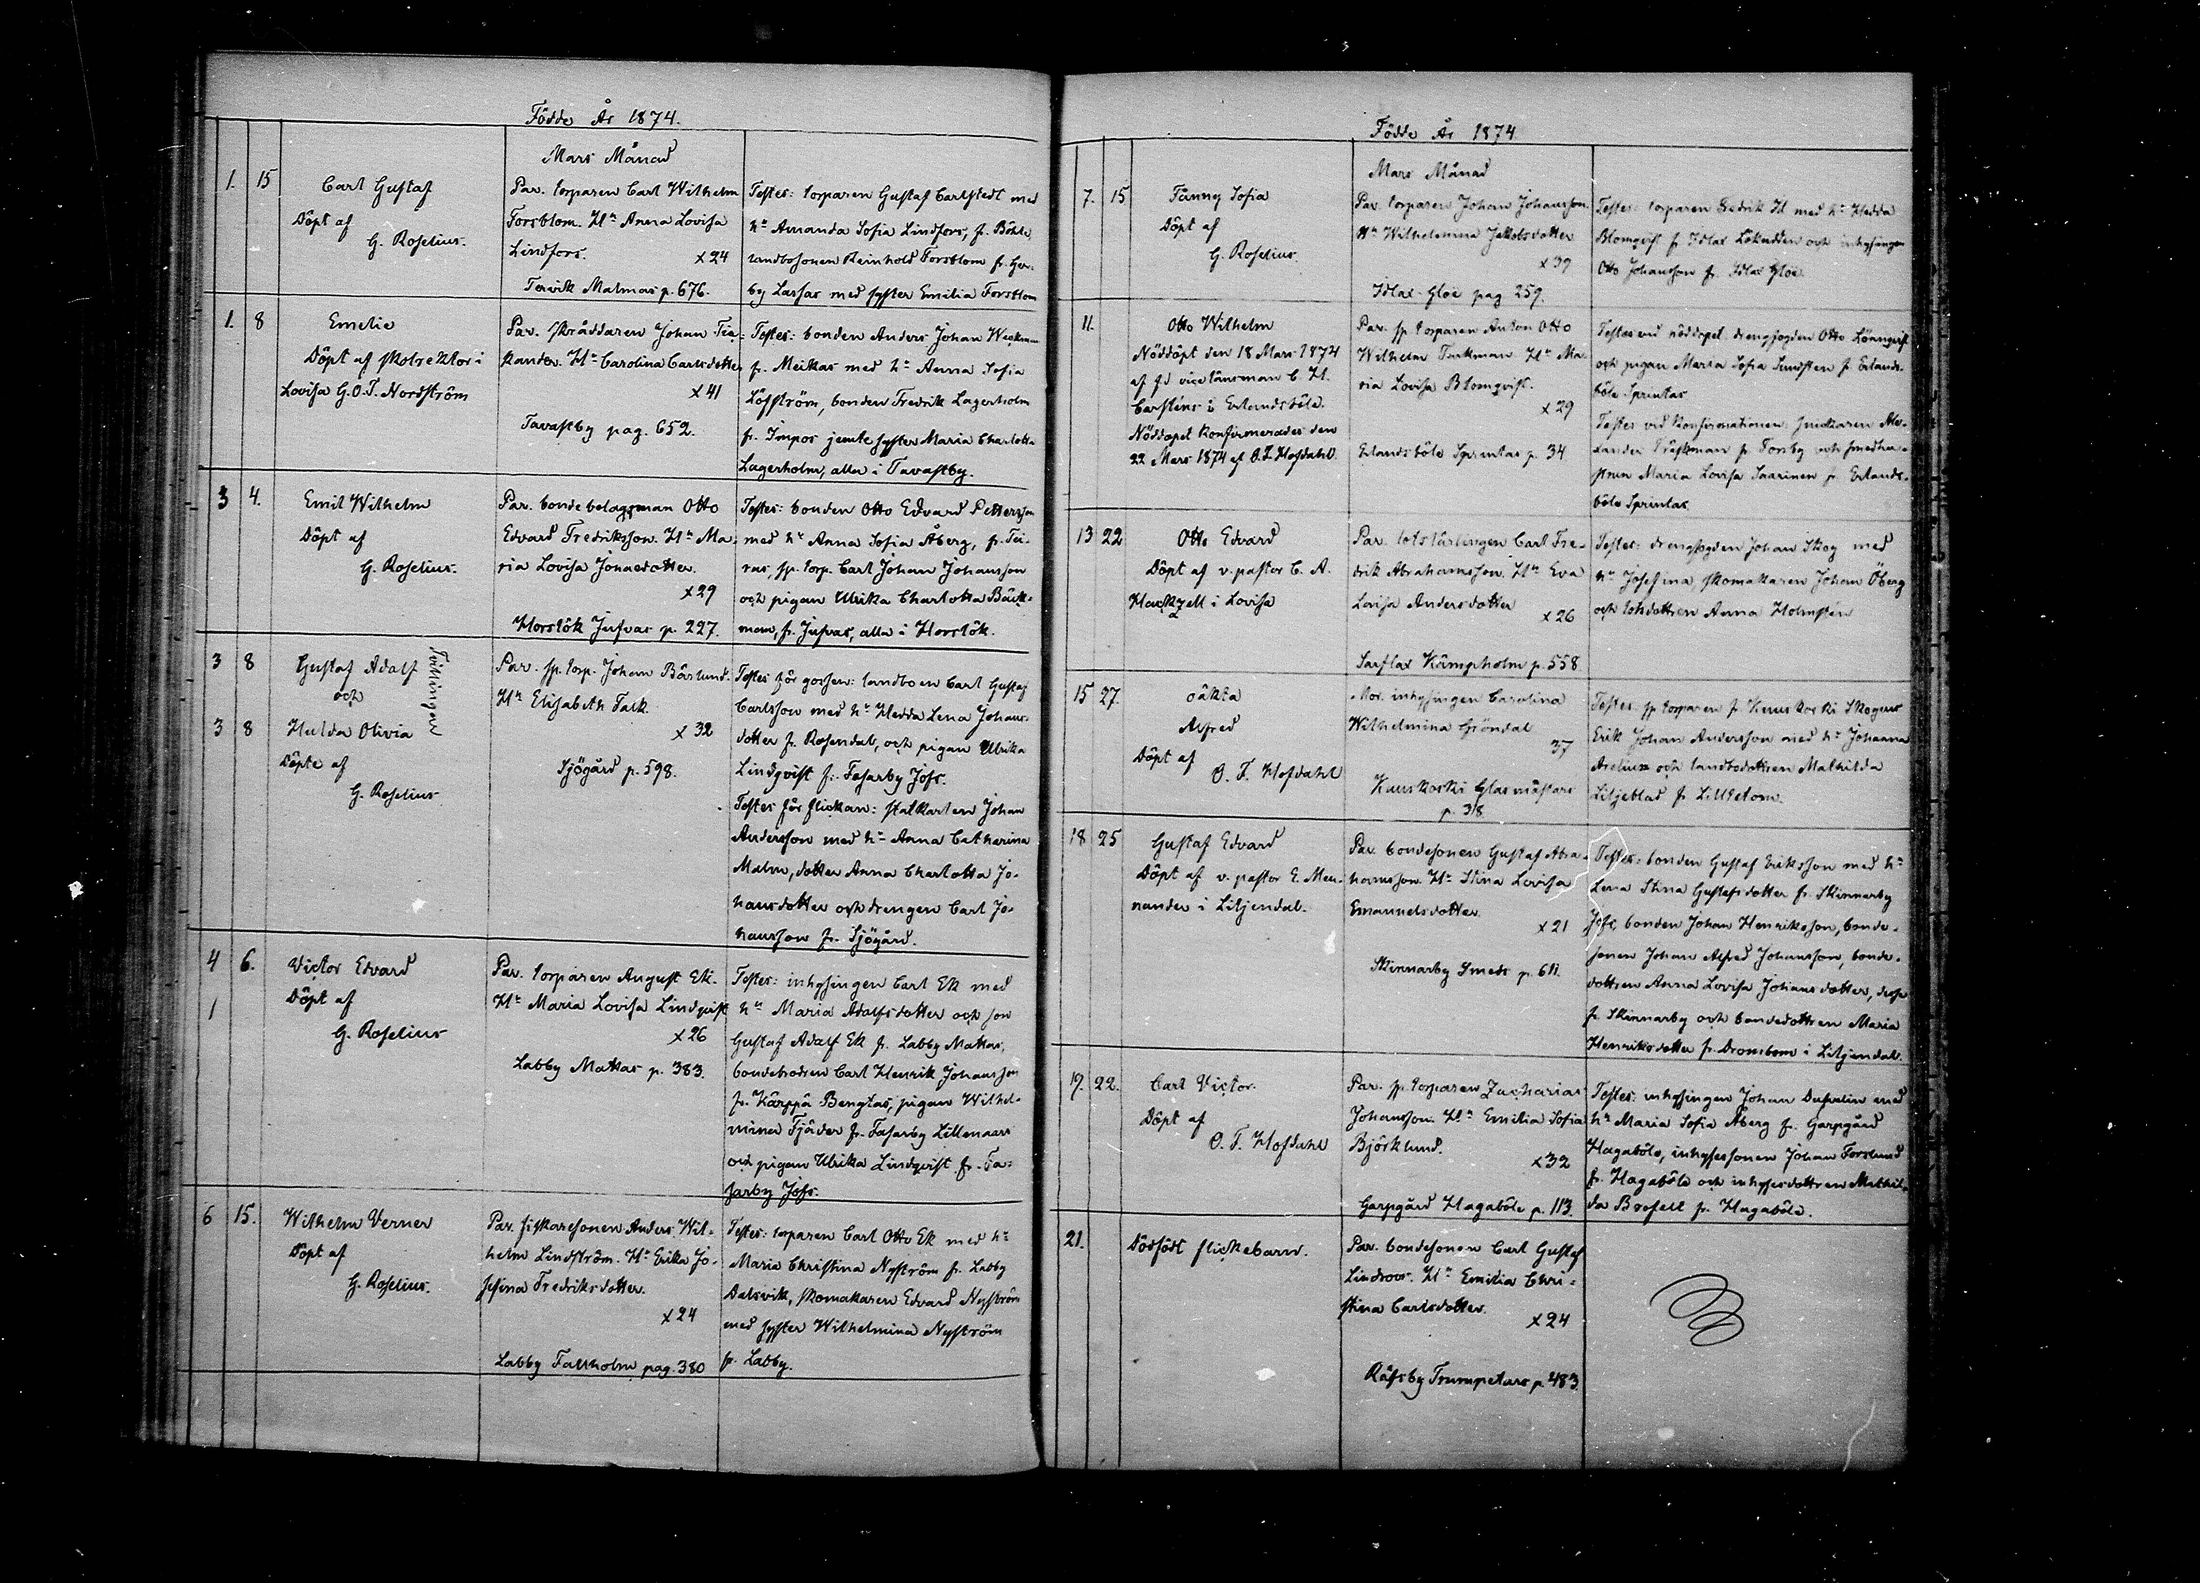 Födde År 1874.
Mars Månad
1. 15 Carl Gustaf
Döpt af
G. Roselius.
Par. torparen Carl Wilhelm
Forsblom. H:n Anna Lovisa
Lindfors.
x24
Tervik Malmas p. 676.
Testes: torparen Gustaf Carlstedt med
h:n Amanda Sofia Lindfors, f.
landbosonen Reinhold Forsblom fr. Ger-
by Lassas med syster Emilia Forsblom
1. 8 Emelie
Döpt af skolrektor i
Lovisa G.O.T. Nordström
Par. skräddaren Johan Tia-
kander. H:n Carolina Carlsdotter
x41
Tavastby pag. 652.
Testes: bonden Anders Johan Weckman
fr. Meikas med h:n Anna Sofia
Löfström, bonden Fredrik Lagerholm
fr. Impos jemte syster Maria Charlotta
Lagerholm, alla i Tavastby.
3 4. Emil Wilhelm
Döpt af
G. Roselius.
Par. bonde bolagsman Otto
Edvard Fredriksson. H:n Ma-
ria Lovisa Jonasdotter.
x29
Horslök Jufvas p. 227.
Testes: bonden Otto Edvard Pettersson
med h:n Anna Sofia Åberg, fr. Tei-
ras, sp. torp. Carl Johan Johansson
och pigan Ulrika Charlotta Bäck-
man, fr. Jufvas, alla i Horslök.
3 8 Gustaf Adolf
och
3 8 Hulda Olivia
Tvillingar
Döpte af
G. Roselius
Par. sp. torp. Johan Bärlund.
H:n Elisabeth Falk.
x32
Sjögård p. 598.
Testes för gossen: landboen Carl Gustaf
Carlsson med h:n Hedda Lena Johans-
dotter fr. Rosendal, och pigan Ulrika
Lindqvist fr. Fasarby Jofs.
Testes för flickan: stalkarlen Johan
Andersson med h:n Anna Catharina
Malm, dotter Anna Charlotta Jo-
hansdotter och drengen Carl Jo-
hansson fr. Sjögård.
4 6. Victor Edvard
1
Döpt af
G. Roselius
Par. torparen August Ek.
H:n Maria Lovisa Lindqvist
x26
Labby Mattas p. 383.
Testes: inhysingen Carl Ek med
h:n Maria Adolfsdotter och son
Gustaf Adolf Ek fr. Labby Mattas,
bondebrodren Carl Henrik Johansson
fr. Kärppä Bengtas, pigan Wilhel-
mina Tjäder fr. Fasarby Lillenaars
och pigan Ulrika Lindqvist fr. Fa-
sarby Jofs.
6 15. Wilhelm Verner
Döpt af
G. Roselius.
Par. fiskaresonen Anders Wil-
helm Lindström. H:n Erika Jo-
sefina Fredriksdotter.
x24
Labby Fallholm pag. 380
Testes: torparen Carl Otto Ek med h:n
Maria Christina Nyström fr. Labby
Dalsvik, skomakaren Edvard Nyström
med syster Wilhelmina Nyström
fr. Labby.
Födde År 1874
Mars Månad
7. 15 Fanny Sofia
Döpt af
G. Roselius
Par. torparen Johan Johansson
H:n Wilhelmina Jakobsdotter
x39
Idlax Gloe pag 259.
Testes: torparen Fredrik H med h:n Hedda
Blomqvist fr. Idlax Lökudden och inhysingen
Otto Johansson fr. Idlax Gloe.
11. Otto Wilhelm
Nöddöpt den 18 Mars 1874
af fd vice länsman C. H.
Carsténs i Erlandsböle.
Nöddopet konfirmerades den
22 Mars 1874 af O. F. Hofdahl.
Par. sp torparen Anton Otto
Wilhelm Turkman H:n Ma-
ria Lovisa Blomqvist.
x29
Erlandsböle Sprintas p. 34
Testes vid nöddopet drengsogden Otto Lönnqvist
och pigan Maria Sofia Sundsten fr Erlands-
böle Sprintas
Testes vid konfirmationen: Alex-
ander fr. Forsby och
Maria Lovisa Saarinen fr Erlands-
böle Sprintas
13 22 Otto Edvard
Döpt af v. pastor C. A.
Hackzell i Lovisa
Par. lotslärlingen Carl Fre-
drik Abrahamsson. H:n Eva
Lovisa Andersdotter
x26
Sarflax Kämpholm p. 558.
Testes: drengsogden Johan Skog med
h:n Josefina skomakaren Johan Öberg
och lotsdottren Anna Holmstén
15 27. oäkta
Alfred
Döpt af
O. F. Hofdahl
Mor. inhysingen Carolina
Wilhelmina Gröndal
37
Kuuskoski Glasmästars
p. 318
Testes: sp torparen fr Kuuskoski Skogars
Erik Johan Andersson med h:n Johanna
Arelius och landbodottren Mathilda
Liljeblad fr Lilletom.
18 25 Gustaf Edvard
Döpt af v. pastor E. Men-
nander i Liljendal.
Par. bondesonen Gustaf Abra-
hamsson. H:n Stina Lovisa
Emanuelsdotter.
x21
Skinnarby Smeds p. 611.
Testes: bonden Gustaf Eriksson med h:n
Lena Stina Gustafsdotter fr. Skinnarby
Jofs, bonden Johan Henriksson, bonde-
sonen Johan Alfred Johansson, bonde-
dottren Anna Lovisa Johansdotter, desse
fr. Skinnarby och bondedottren Maria
Henriksdotter fr. Drombom i Liljendal.
19. 22. Carl Victor.
Döpt af
O. F. Hofdahl
Par. sp. torparen Zacharias
Johansson H:n Emilia Sofia
Björklund.
x32
Garpgård Hagaböle p. 113.
Testes: inhysingen Johan Dufvelin med
h:n Maria Sofia Åberg fr. Garpgård
Hagaböle, inhysessonen Johan Forslund
fr. Hagaböle och inhysesdottren Mathil-
da Brofelt fr. Hagaböle.
21. Dödfödt flickebarn.
Par. bondesonen Carl Gustaf
Lindroos. H:n Emilia Chri-
stina Carlsdotter.
x24
Räfsby Trumpetars p. 483.